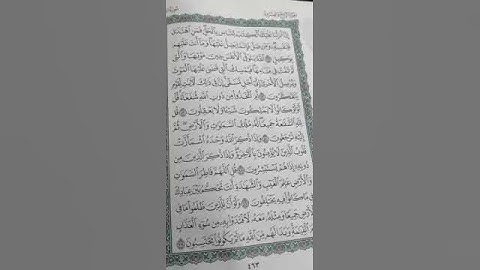 الجزء الرابع والعشرون
إِنَّآ أَنزَلْنَا عَلَيْكَ ٱلْكِتَٰبَ لِلنَّاسِ بِٱلْحَقِّ فَمَنِ ٱهْتَدَىٰ
فَلِنَفْسِهِۦ وَمَن ضَلَّ فَإِنَّمَا يَضِلُّ عَلَيْهَا وَمَآ أَنتَ عَلَيْهِم
بِوَكِيلٍ ٤١ ٱللَّهُ يَتَوَفَّى ٱلْأَنفُسَ حِينَ مَوْتِهَا وَٱلَّتِي
لَمْ تَمُتْ فِي مَنَامِهَا فَيُمْسِكُ ٱلَّتِي قَضَىٰ عَلَيْهَا ٱلْمَوْتَ
وَيُرْسِلُ ٱلْأُخْرَىٰٓ إِلَىٰٓ أَجَلٍ مُّسَمًّى إِنَّ فِي ذَٰلِكَ لَءَايَٰتٍ لِّقَوْمٍ
يَتَفَكَّرُونَ ٤٢ أَمِ ٱتَّخَذُوا۟ مِن دُونِ ٱللَّهِ شُفَعَآءَ قُلْ
أَوَلَوْ كَانُوا۟ لَا يَمْلِكُونَ شَيْـًٔا وَلَا يَعْقِلُونَ ٤٣ قُل
لِّلَّهِ ٱلشَّفَٰعَةُ جَمِيعًا لَّهُۥ مُلْكُ ٱلسَّمَٰوَٰتِ وَٱلْأَرْضِ ثُمَّ
إِلَيْهِ تُرْجَعُونَ ٤٤ وَإِذَا ذُكِرَ ٱللَّهُ وَحْدَهُ ٱشْمَأَزَّتْ
قُلُوبُ ٱلَّذِينَ لَا يُؤْمِنُونَ بِٱلْءَاخِرَةِ وَإِذَا ذُكِرَ ٱلَّذِينَ مِن
دُونِهِۦٓ إِذَا هُمْ يَسْتَبْشِرُونَ ٤٥ قُلِ ٱللَّهُمَّ فَاطِرَ ٱلسَّمَٰوَٰتِ
وَٱلْأَرْضِ عَٰلِمَ ٱلْغَيْبِ وَٱلشَّهَٰدَةِ أَنتَ تَحْكُمُ بَيْنَ عِبَادِكَ
فِي مَا كَانُوا۟ فِيهِ يَخْتَلِفُونَ ٤٦ وَلَوْ أَنَّ لِلَّذِينَ ظَلَمُوا۟ مَا فِي
ٱلْأَرْضِ جَمِيعًا وَمِثْلَهُۥ مَعَهُۥ لَٱفْتَدَوْا۟ بِهِۦ مِن سُوٓءِ ٱلْعَذَابِ
يَوْمَ ٱلْقِيَٰمَةِ وَبَدَا لَهُم مِّنَ ٱللَّهِ مَا لَمْ يَكُونُوا۟ يَحْتَسِبُونَ ٤٧
٤٦٣